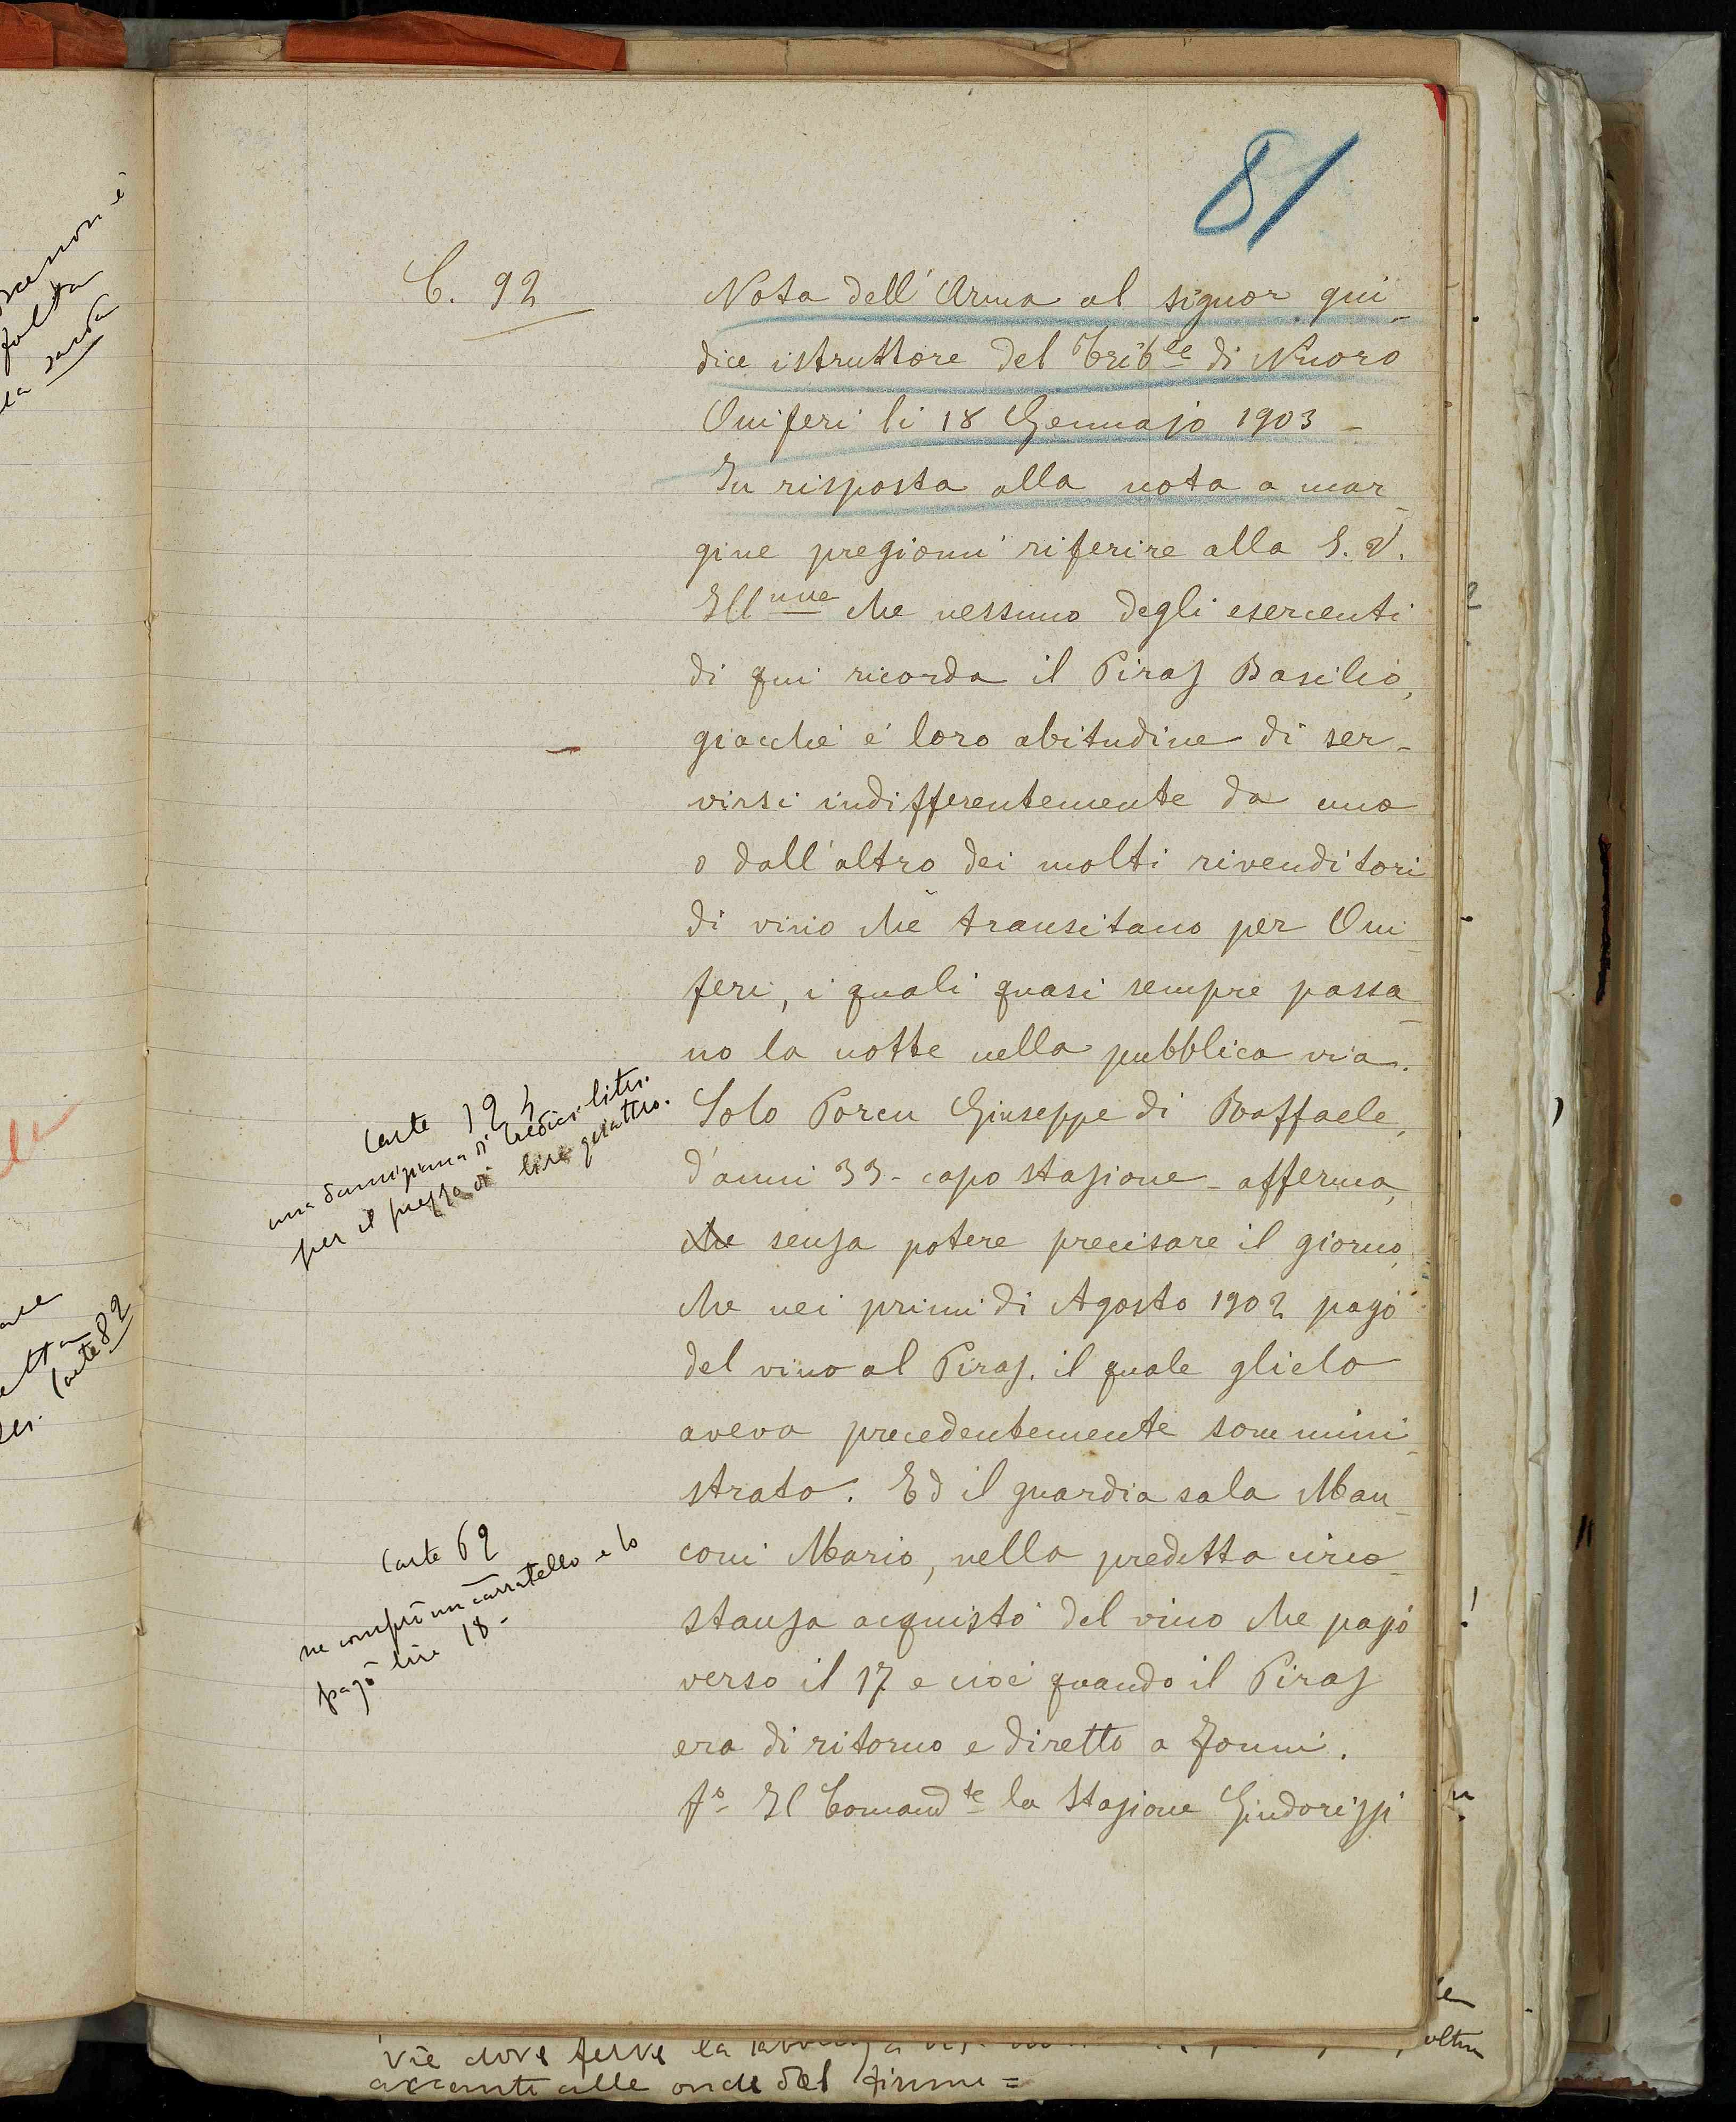 81
C. 92
Nota dell'Arma al signor giu-
dice istruttore del Trib.le di Nuoro
Oniferi li 18 Gennajo 1903 -
In risposta alla nota a mar-
gine pregiomi riferire alla S. V.
Ill.ma che nessuno degli esercenti
di qui ricorda il Piras Basilio,
giacché é loro abitudine di ser-
virsi indifferentemente da uno
o dall'altro dei molti rivenditori
di vino che transitano per Oni-
feri, i quali quasi sempre passa-
no la notte nella pubblica via.
Solo Porcu Giuseppe di Raffaele,
d'anni 33 - capo stazione - afferma,
che senza potere precisare il giorno,
che nei primi di Agosto 1902 pagó
del vino al Piras, il quale glielo
aveva precedentemente sommini-
strato. Ed il guardia sala Man-
coni Mario, nella predetta circo-
stanza acquistó del vino che pagó
verso il 17 e cioé quando il Piras
era di ritorno e diretto a Fonni.
fo Il Comand.te la Stazione
carte
una damigiana di tredici litri
per il prezzo di lire quattro.
carte 62
ne comprò un carratello e lo
pagò lire 18 -
la sarda
carte 82
vie dove ferve la
accanto alle onde del fiume =
oltre